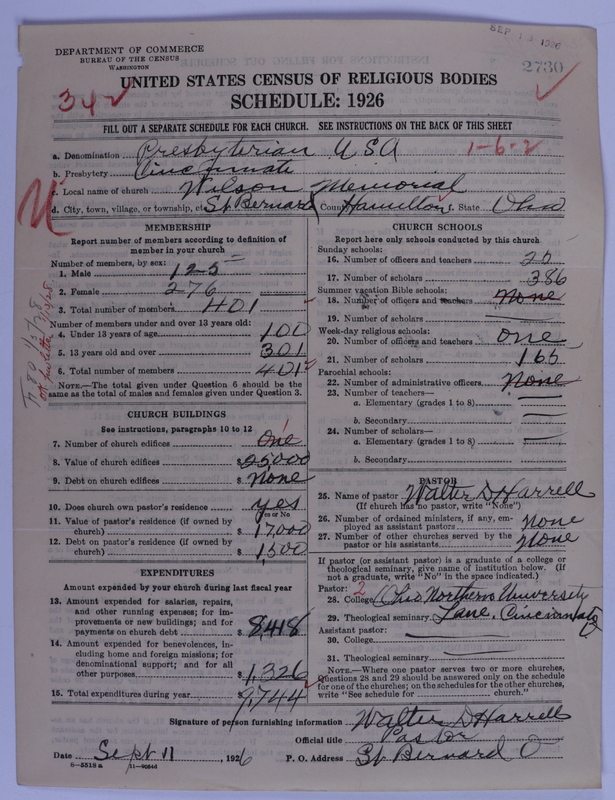 SEP 13 1926
DEPARTMENT OF COMMERCE
BUREAU OF THE CENSUS
WASHINGTON
2730
UNITED STATES CENSUS OF RELIGIOUS BODIES
SCHEDULE: 1926
342
FILL OUT A SEPARATE SCHEDULE FOR EACH CHURCH. SEE INSTRUCTIONS ON THE BACK OF THIS SHEET
a. Denomination Presbyterian USA 1-6-2
b. Presbytery Cincinnati
c. Local name of church Wilson Memorial
d. City, town, village, or township, etc St Bernard County Hamilton f. State Ohio
MEMBERSHIP
Report number of members according to definition of
member in your church
Number of members, by sex:
1. Male 125
2. Female 276
3. Total number of members 401
Number of members under and over 13 years old:
4. Under 13 years of age 100
5. 13 years old and over 301
6. Total number of members 401
NOTE.—The total given under Question 6 should be the
same as the total of males and females given under Question 3.
CHURCH BUILDINGS
See instructions, paragraphs 10 to 12
7. Number of church edifices One
8. Value of church edifices $ 25000
9. Debt on church edifices $ None
10. Does church own pastor's residence? yes
Yes or No
11. Value of pastor's residence (if owned by
church) $ 17,000
12. Debt on pastor's residence (if owned by
church) $ 1,500
EXPENDITURES
Amount expended by your church during last fiscal year
13. Amount expended for salaries, repairs,
and other running expenses; for im-
provements or new buildings; and for
payments on church debt $ 8,418
14. Amount expended for benevolences, in-
cluding home and foreign missions; for
denominational support; and for all
other purposes $ 1,326
15. Total expenditures during year 9,744
CHURCH SCHOOLS
Report here only schools conducted by this church
Sunday schools:
16. Number of officers and teachers 25
17. Number of scholars 386
Summer vacation Bible schools:
18. Number of officers and teachers None
19. Number of scholars
Week-day religious schools:
20. Number of officers and teachers One
21. Number of scholars 165
Parochial schools:
22. Number of administrative officers None
23. Number of teachers—
a. Elementary (grades 1 to 8)
b. Secondary
24. Number of scholars—
a. Elementary (grades 1 to 8)
b. Secondary
PASTOR
25. Name of pastor Walter D Harrell
(If church has no pastor, write "None")
26. Number of ordained ministers, if any, em-
ployed as assistant pastors None
27. Number of other churches served by the
pastor or his assistants None
If pastor (or assistant pastor) is a graduate of a college or
theological seminary, give name of institution below. (If
not a graduate, write "No" in the space indicated.)
Pastor: 2
28. College Ohio Northern University
29. Theological seminary Lane, Cincinnati O
Assistant pastor:
30. College
31. Theological seminary
NOTE.—Where one pastor serves two or more churches,
Questions 28 and 29 should be answered only on the schedule
for one of the churches; on the schedules for the other churches,
write "See schedule for church."
Signature of person furnishing information Walter D Harrell
Official title Pastor
Date Sept 11, 1926 P. O. Address St Bernard O
8-5518 a